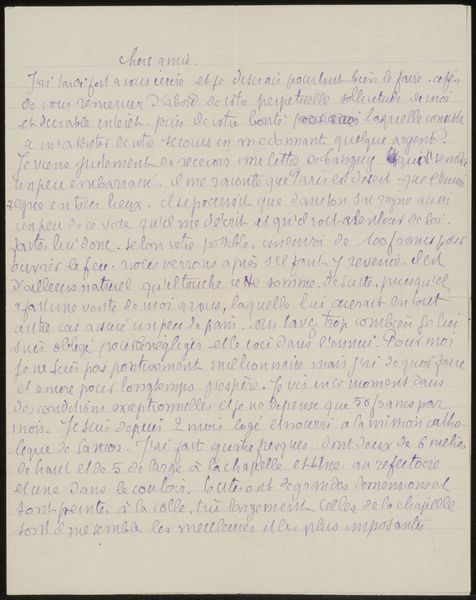 chers amis.
J'ai tardé fort à vous écrire et je désirais pourtant bien le faire. afin
de vous remercier d'abord de votre perpétuelle sollicitude de moi
et durable intérêt. puis de votre bonté laquelle consiste
à m'assister de votre secours en me donnant quelque argent.
Je viens justement de recevoir une lettre de banque qui semble
un peu embarrassé. il me raconte que Paris est désert - que l'ennui
règne en tous lieux. il se pourrait que dans son sac règne aussi
un peu de ce vide qu'il me décrit et qu'il voit alentour de soi.
faites lui donc. selon votre possible. un envoi de 100 francs pour
ouvrir le feu. nous verrons après s'il faut y revenir. il est
d'ailleurs naturel qu'il touche cette somme, de suite, puisqu'il
a fait une vente de moi à vous, laquelle lui aurait en tout
autre cas assuré un peu de pain. vous savez trop combien je lui
suis obligé pour négliger et le voici dans l'ennui. Pour moi
je ne suis pas positivement millionnaire mais j'ai de quoi faire
et encore pour longtemps j'espère. Je vis en ce moment dans
des conditions exceptionnelles et je ne dépense que 50 francs par
mois. Je suis depuis 2 mois logé et nourri à la mission catho-
lique de Santos. J'ai fait quatre fresques dont deux de 6 mètres
de haut et de 5 de large à la chapelle et une au réfectoire
et une dans le couloir. toutes ont de grandes dimensions et
sont peintes, à la colle, très largement. Celles de la chapelle
sont il me semble les meilleures et les plus imposantes